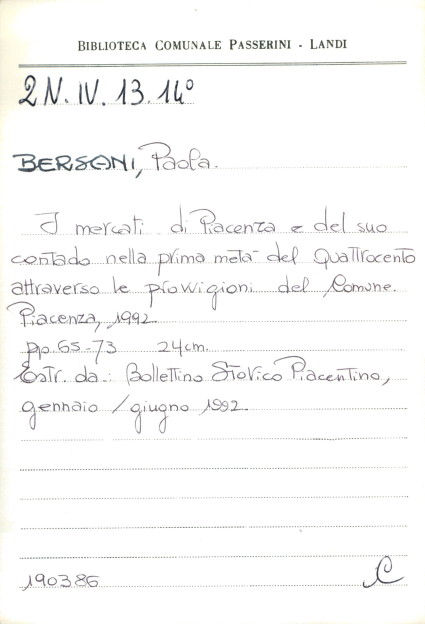 BIBLIOTECA COMUNALE PASSERINI - LANDI
2N. IV. 13. 14°
BERSANI, Paola.
I mercati di Piacenza e del suo
contado nella prima metà del Quattrocento
attraverso le provvigioni del Comune.
Piacenza, 1992.
pp. 65-73 24cm.
Estr. da: Bollettino Storico Piacentino,
gennaio / giugno 1992.
190386
C